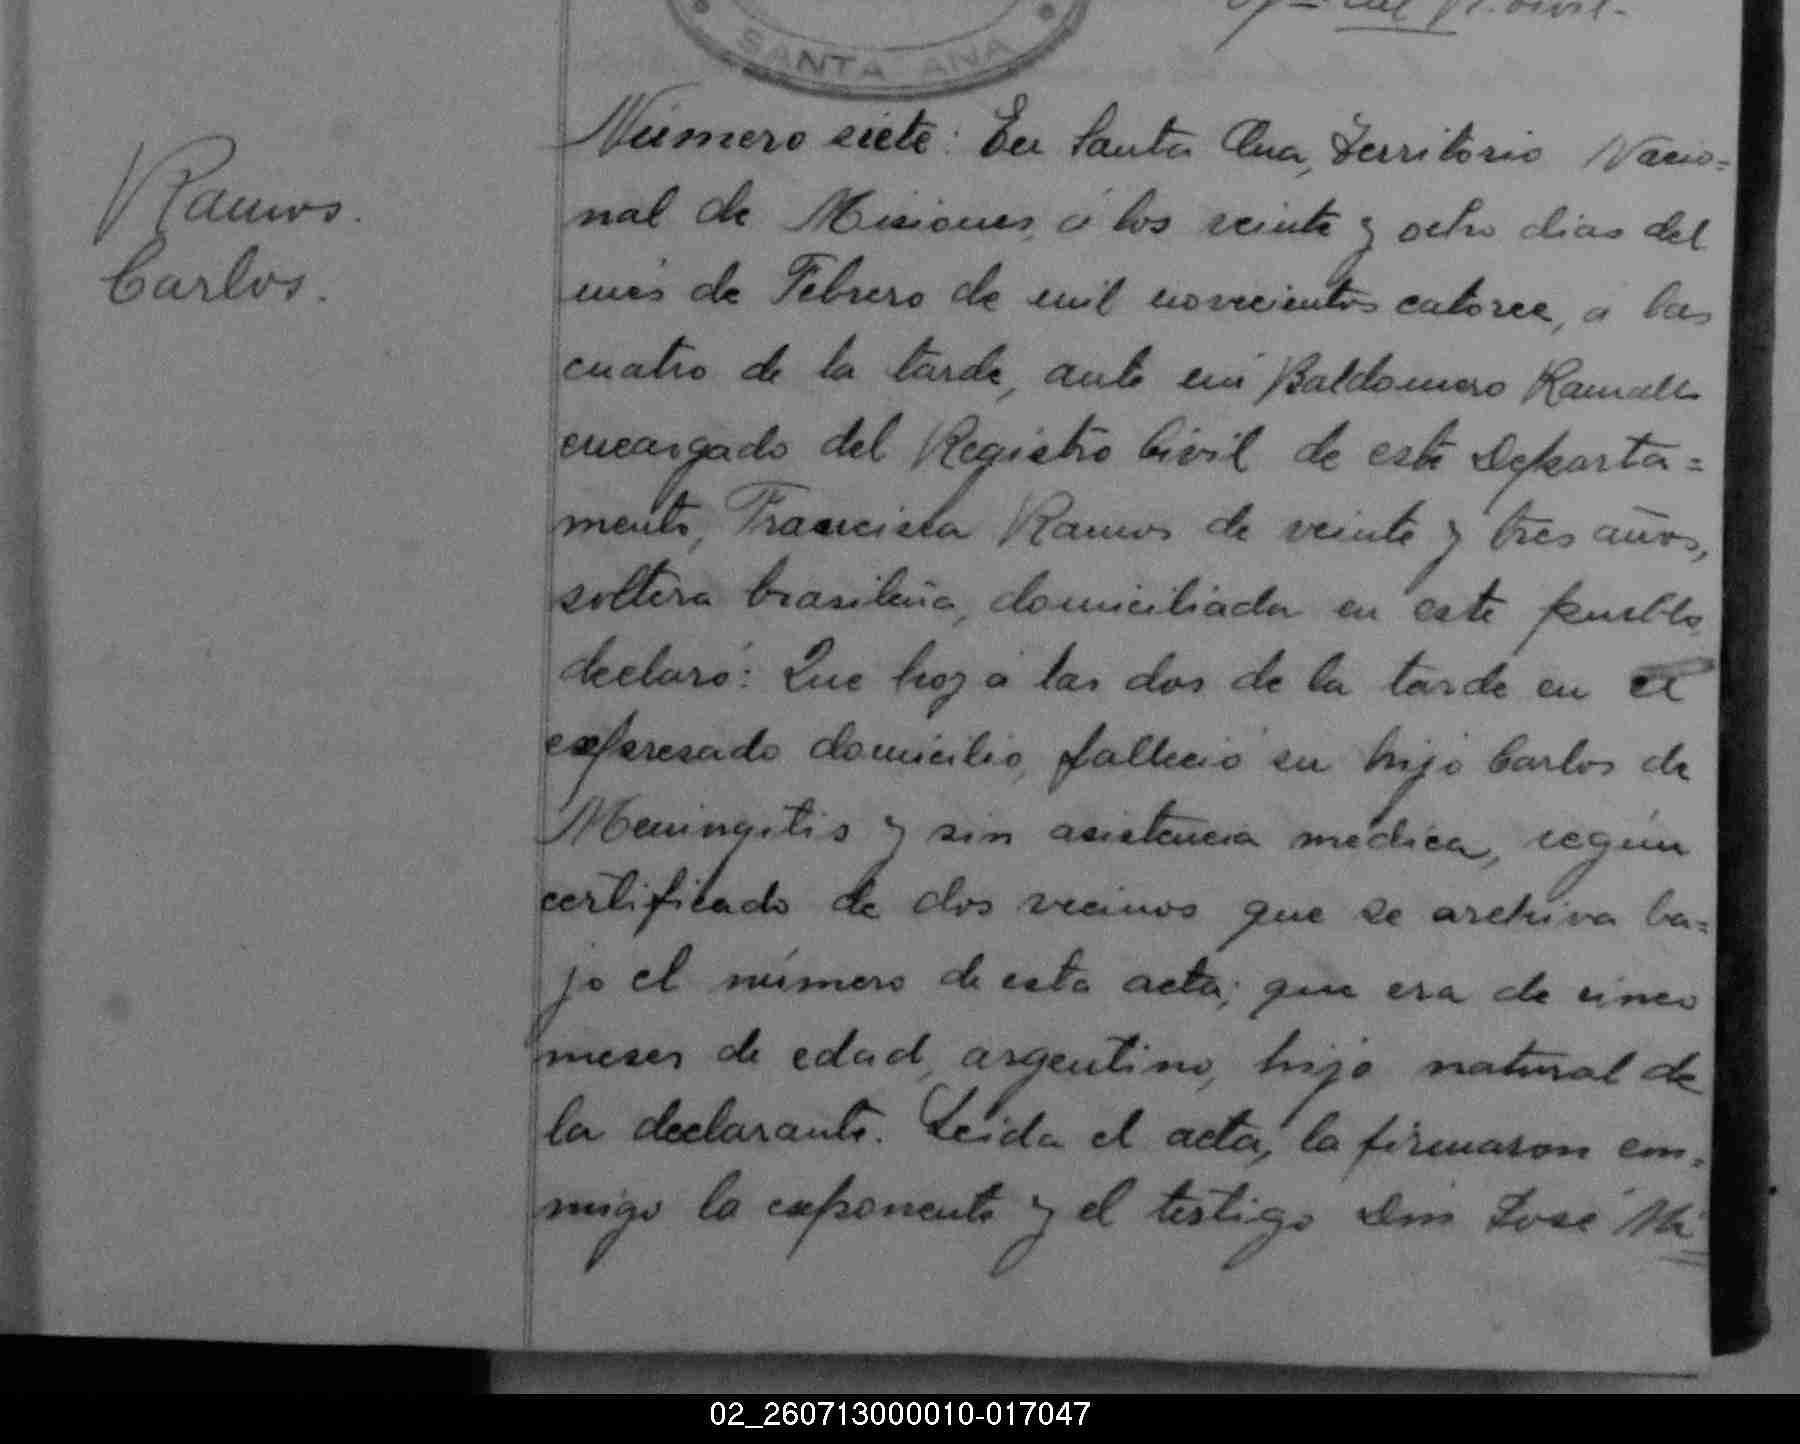 SANTA ANA
Ramos.
Carlos.
Número siete: En Santa Ana, Territorio Nacio=
nal de Misiones, á los veinte y ocho dias del
mes de Febrero de mil novecientos catorce, á las
cuatro de la tarde, ante mi Baldomero
encargado del Registro Civil de este Departa=
mento, Francisca Ramos de veinte y tres años,
soltera brasileña, domiciliada en este pueblo
declaró: Que hoy á las dos de la tarde en el
expresado domicilio, falleció su hijo Carlos de
Meningitis y sin asistencia médica, según
certificado de dos vecinos que se archiva ba=
jo el número de esta acta; que era de cinco
meses de edad, argentino, hijo natural de
la declarante. Leida el acta, la firmaron con=
migo la exponente y el testigo Don José
02_260713000010-017047